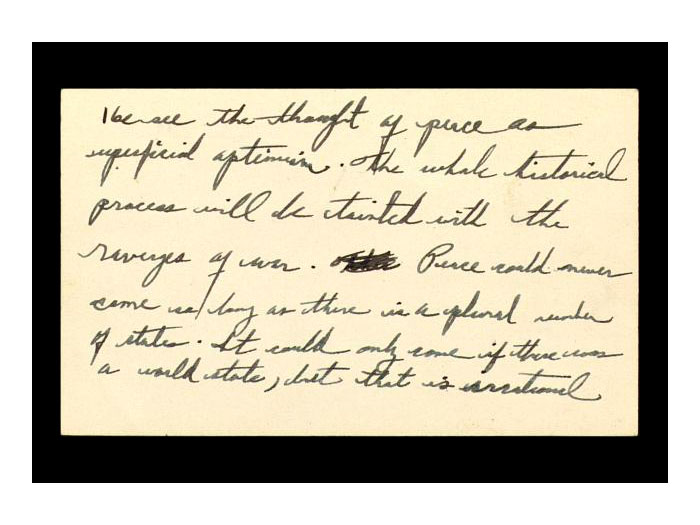 He see the thought of peice as
superficial optimism. The whole historical
process will be tainted with the
raverges of war. Peice could never
come as long as there is a plural number
of states. It could only come if there was
a world state, but that is irrational